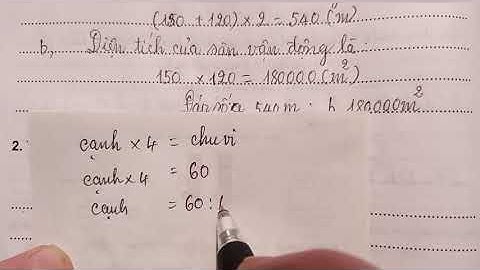 (150 + 120) × 2 = 540 (m)
b, Diện tích của sân vận động là :
150 × 120 = 180000 (m²)
Đáp số a 540m ; b 180000m²
2.
cạnh × 4 = chu vi
cạnh × 4 = 60
cạnh = 60 :